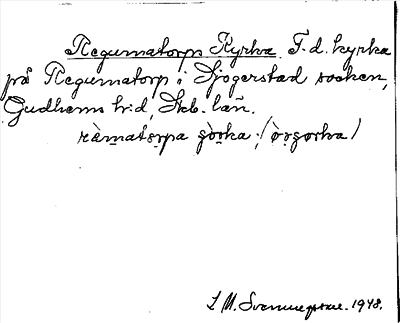 Regumatorps Kyrka. F.d. kyrka
på Regumatorp i Sjogerstad socken,
Gudhems h:d, Skb. län.
ràmatorpa ɟòrka ; /
I. M. 1948.